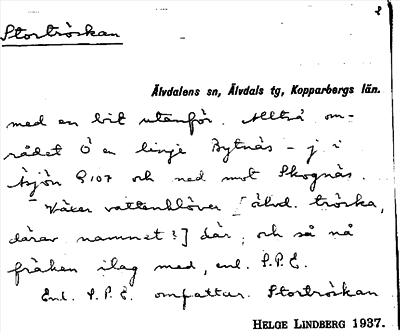 2
Stortröskan
Älvdalens sn, Älvdals tg, Kopparbergs län.
med en bit utanför. Alltså om-
rådet Ö en linje Bytnäs – j i
Åsjön 9107 och ned mot Skognäs.
Växer vattenklöver [älvd. tröska,
därav namnet?] där, och så nå
fräken ilag med, enl. S.P.E.
Enl. S.P.E. omfattar Stortröskan
HELGE LINDBERG 1937.